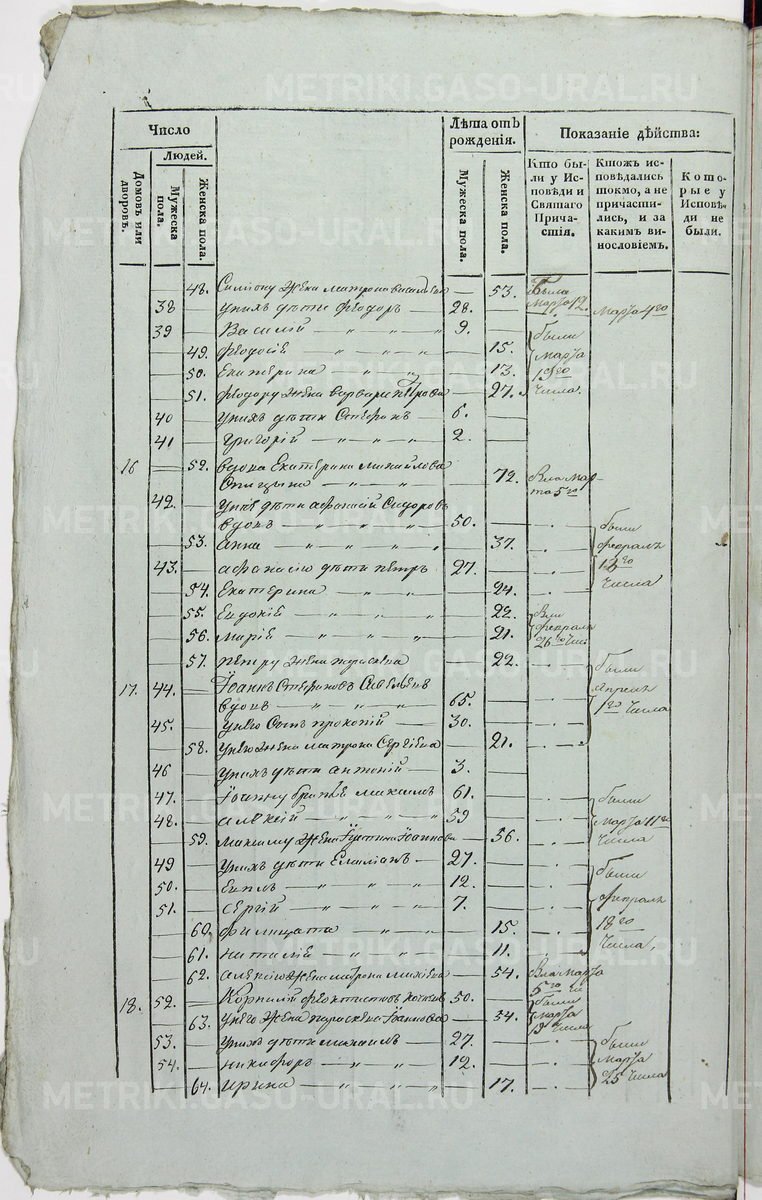 Число
Лѣта отъ рожденія.
Показаніе дѣйства:
Людей.
Домовъ или дворовъ.
Мужеска пола.
Женска пола.
Мужеска пола.
Женска пола.
Кто были у Исповѣди и Святаго Причастія.
Ктожъ исповѣдались токмо, а не причастились, и за какимъ винословіемъ.
Которые у Исповѣди не были.
48. Симіону жена Матрона 53. Была Марта 12
38 у нихъ дѣти Ѳеодоръ 28. Марта 4го
39 Василій 9. были
49. Ѳеодосіѣ 15. Марта
50. Екатерина 13. 19го
51. Ѳеодору жена Варвара Петрова 27. числа.
40 у нихъ дѣти Стефанъ 6.
41 Григорій 2.
16 52. вдова Екатерина Михайлова
72. Была Мар-
та 5го
42. у нее дѣти Афанасій Сидоровъ
вдовъ 50. были
53. Анна 37. Февраля
43. Афанасію дѣти Петръ 27. 12го
54. Екатерина 24. числа
55. Евдокіѣ 22.
56. Маріѣ 21. Февраля
26го
57. Петру жена Параскева 22. были
17. 44. Іоаннъ Стефановъ Савельевъ Апреля
вдовъ 65. 1го числа
45. у него сынъ Прокопій 30.
58. у него жена Матрона Сергіева 21.
46 у нихъ дѣти Антоній 3.
47. Іоанну братьѣ Максимъ 61. были
48. Алекѣй 59 Марта 11го
59. Максиму жена Іустина Іоаннова 56. числа
49 у нихъ дѣти Емиліанъ 27. были
50. Евплъ 12. Февраля
51. Сергій 7. 18го
60. Филицата 15. числа,
61. Наталіѣ 11.
62. Алексію жена Матрона 54. Была Марта
5го
18. 52. Корнилій Ѳеоктистовъ 50. были
63. у него жена Параскева Іоаннова 54. Марта
19 числа
53. у нихъ дѣти Михаилъ 27. были
54. Никифоръ 12. Марта
64. Ирина 17. 25 числа
METRIKI.GASO-URAL.RU